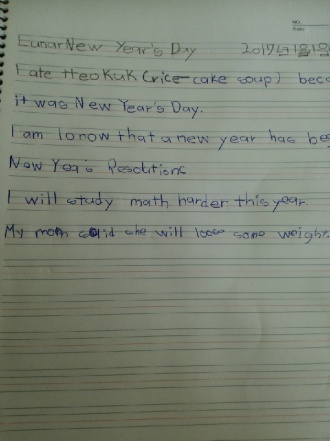 NO.
Lunar New Year's Day 2017년 1월 1일
I ate tteokuk (rice-cake soup) beca
it was New Year's Day.
I am know that a new year has be
New Yea's Resoltions
I will study math harder this year
My mom said she will loos some weight.